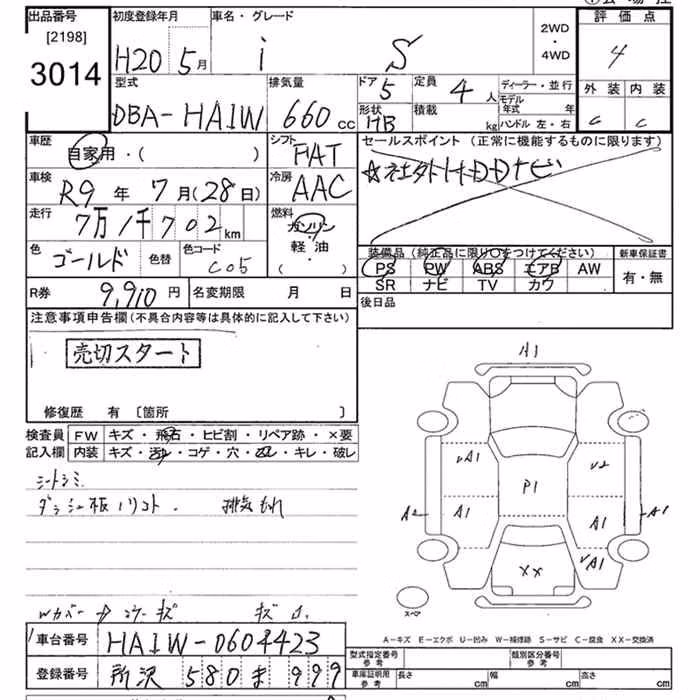 出品番号 初度登録年月 車名・グレード 評価点
[2198] 2WD
3014 H20 5月 i S ・ 4
4WD
型式 排気量 ドア 5 定員 4人 ディーラー・並行 外装 内装
DBA-HA1W 660cc 形状 HB 積載 kg モデル年式 年 C C
ハンドル 左・右
車歴 自家用・( ) シフト FAT セールスポイント (正常に機能するものに限ります)
車検 R9年 7月(28日) 冷房 AAC ☆社外HDDナビ
走行 7万1千702km 燃料 ガソリン・軽油( )
色 ゴールド 色替 色コード C05
装備品(純正品に限り○をつけてください) 新車保証書
PS PW ABS エアB AW 有・無
SR ナビ TV カワ
R券 9,910円 名変期限 月 日 後日品
注意事項申告欄(不具合内容等は具体的に記入して下さい)
売切スタート
修復歴 有 〔箇所 〕
検査員 FW キズ・飛石・ヒビ割・リペア跡・×要
記入欄 内装 キズ・汚れ・コゲ・穴・・キレ・破レ
シートシミ
排気もれ
キズ
A1
A1 2
P1
A2 A1 A1 A1
XX A1
スペア
A-キズ E-エクボ U-凹み W-補修跡 S-サビ C-腐食 XX-交換済
車台番号 HA1W-0604423
登録番号 所沢 580 ま 999
型式指定番号 参考 類別区分番号 参考
車庫証明用 参考 長さ cm 幅 cm 高さ cm